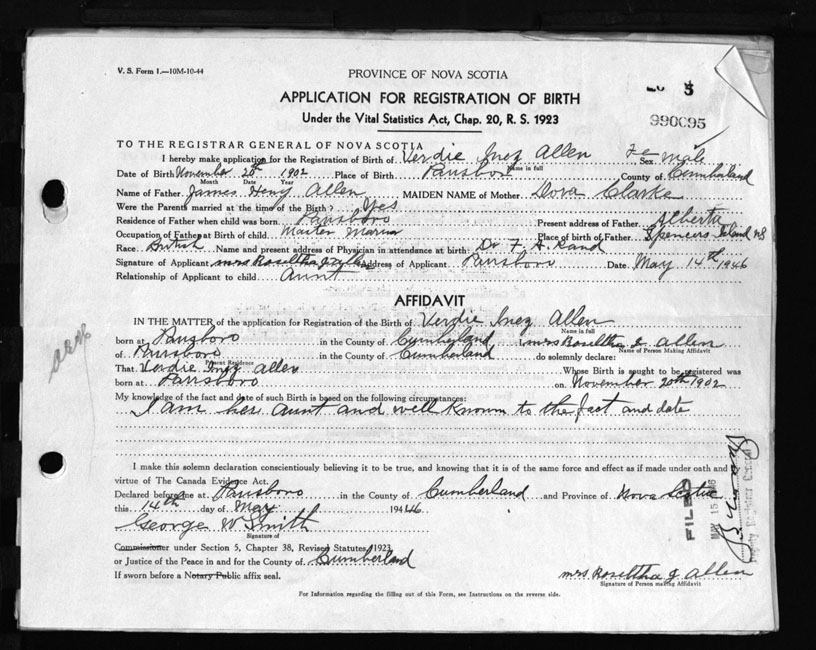 V. S. Form 1.—10M-10-44
PROVINCE OF NOVA SCOTIA
5
990095
APPLICATION FOR REGISTRATION OF BIRTH
Under the Vital Statistics Act, Chap. 20, R. S. 1923
TO THE REGISTRAR GENERAL OF NOVA SCOTIA
I hereby make application for the Registration of Birth of Verdie Inez Allen Sex Fe Male
Name in full
Date of Birth November 20th 1902 Place of Birth Parrsboro County of Cumberland
Month Date Year
Name of Father James Henry Allen MAIDEN NAME of Mother Dora Clarke
Were the Parents married at the time of the Birth? Yes
Residence of Father when child was born Parrsboro Present address of Father Alberta
Occupation of Father at Birth of child Master Marin Place of birth of Father Spencers Island NS
Race British Name and present address of Physician in attendance at birth: Dr F. A. Rand
Signature of Applicant mrs Roseltha J Allen Address of Applicant Parrsboro Date May 14th 1946
Relationship of Applicant to child aunt
AFFIDAVIT
IN THE MATTER of the application for Registration of the Birth of Verdie Inez Allen
Name in full
born at Parrsboro in the County of Cumberland, I, mrs Roseltha J Allen
Name of Person Making Affidavit
of Parrsboro in the County of Cumberland do solemnly declare:
Present Residence
That Verdie Inez Allen Whose Birth is sought to be registered was
born at Parrsboro on November 20th 1902
My knowledge of the fact and date of such Birth is based on the following circumstances:
I am her aunt and well known to the fact and date
I make this solemn declaration conscientiously believing it to be true, and knowing that it is of the same force and effect as if made under oath and
virtue of The Canada Evidence Act.
Declared before me at Parrsboro in the County of Cumberland and Province of Nova Scotia
this 14th day of May 1946
George W Smith
Signature of
Commissioner under Section 5, Chapter 38, Revised Statutes 1923
or Justice of the Peace in and for the County of Cumberland
If sworn before a Notary Public affix seal.
mrs Roseltha J Allen
Signature of Person making Affidavit
For Information regarding the filling out of this Form, see Instructions on the reverse side.
FILED
MAY 15 1946
Deputy Registrar General